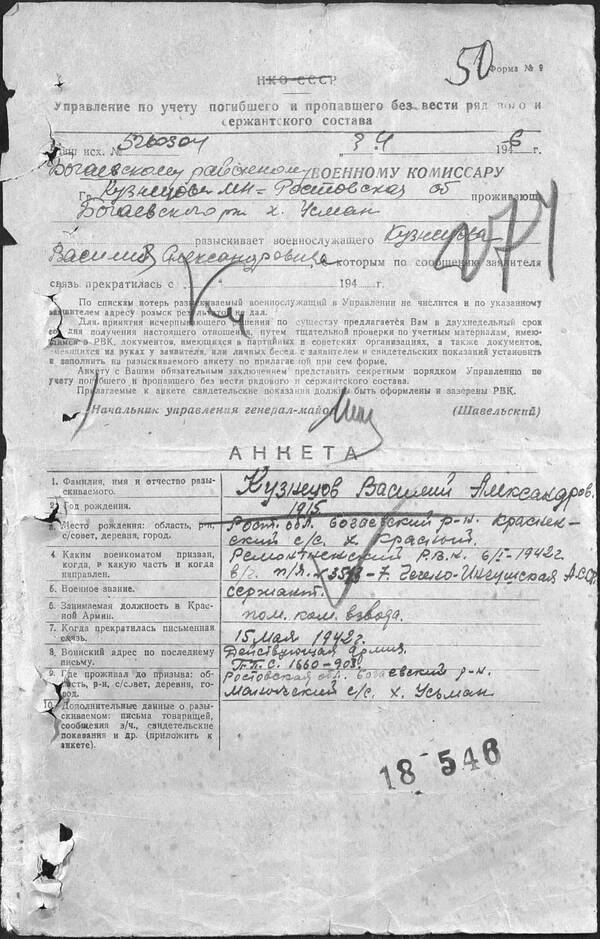 50
Форма № 9
НКО СССР
Управление по учету погибшего и пропавшего без вести рядового и
сержантского состава
исх. № 526030ч 3 4 1946 г.
Богаевскому районному ВОЕННОМУ КОМИССАРУ
Гр. Кузнецова МН - Ростовская об проживающ
Богаевского рн х. Усман
разыскивает военнослужащего Кузнецова
Василия Александровича, с которым по сообщению заявителя
связь прекратилась с " 194 г.
По спискам потерь разыскиваемый военнослужащий в Управлении не числится и по указанному
заявителем адресу розыск результатов не дал.
Для принятия исчерпывающего решения по существу предлагается Вам в двухнедельный срок
со дня получения настоящего отношения, путем тщательной проверки по учетным материалам, имею-
щимся в РВК, документов, имеющихся в партийных и советских организациях, а также документов,
имеющихся на руках у заявителя, или личных бесед с заявителем и свидетельских показаний установить
и заполнить на разыскиваемого анкету по прилагаемой при сем форме.
Анкету с Вашим обязательным заключением представить секретным порядком Управлению по
учету погибшего и пропавшего без вести рядового и сержантского состава.
Прилагаемые к анкете свидетельские показания должны быть оформлены и заверены РВК.
Начальник управления генерал-майор (Шавельский)
АНКЕТА
1. Фамилия, имя и отчество разы-
скиваемого. Кузнецов Василий Александров.
2. Год рождения. 1915
3. Место рождения: область, р-н,
с/совет, деревня, город. Рост. обл. Богаевский р-н. Краснен-
ский с/с. х Красный.
4. Каким военкоматом призван,
когда, в какую часть и когда
направлен. Ремонтненский Р.В.К. 6/I-1942г.
в/г. п/я. Чечено-Ингушская АССР
5. Военное звание. сержант.
6. Занимаемая должность в Крас-
ной Армии. пом. ком. взвода.
7. Когда прекратилась письменная
связь. 15 Мая 1942г.
8. Воинский адрес по последнему
письму. Действующая Армия.
П.П.С. 1660-908
9. Где проживал до призыва: об-
ласть, р-н, с/совет, деревня, го-
род. Ростовская обл. Богаевский р-н.
Манычский с/с. х. Усьман
10. Дополнительные данные о разы-
скиваемом: письма товарищей,
сообщения в/ч., свидетельские
показания и др. (приложить к
анкете).
18 546